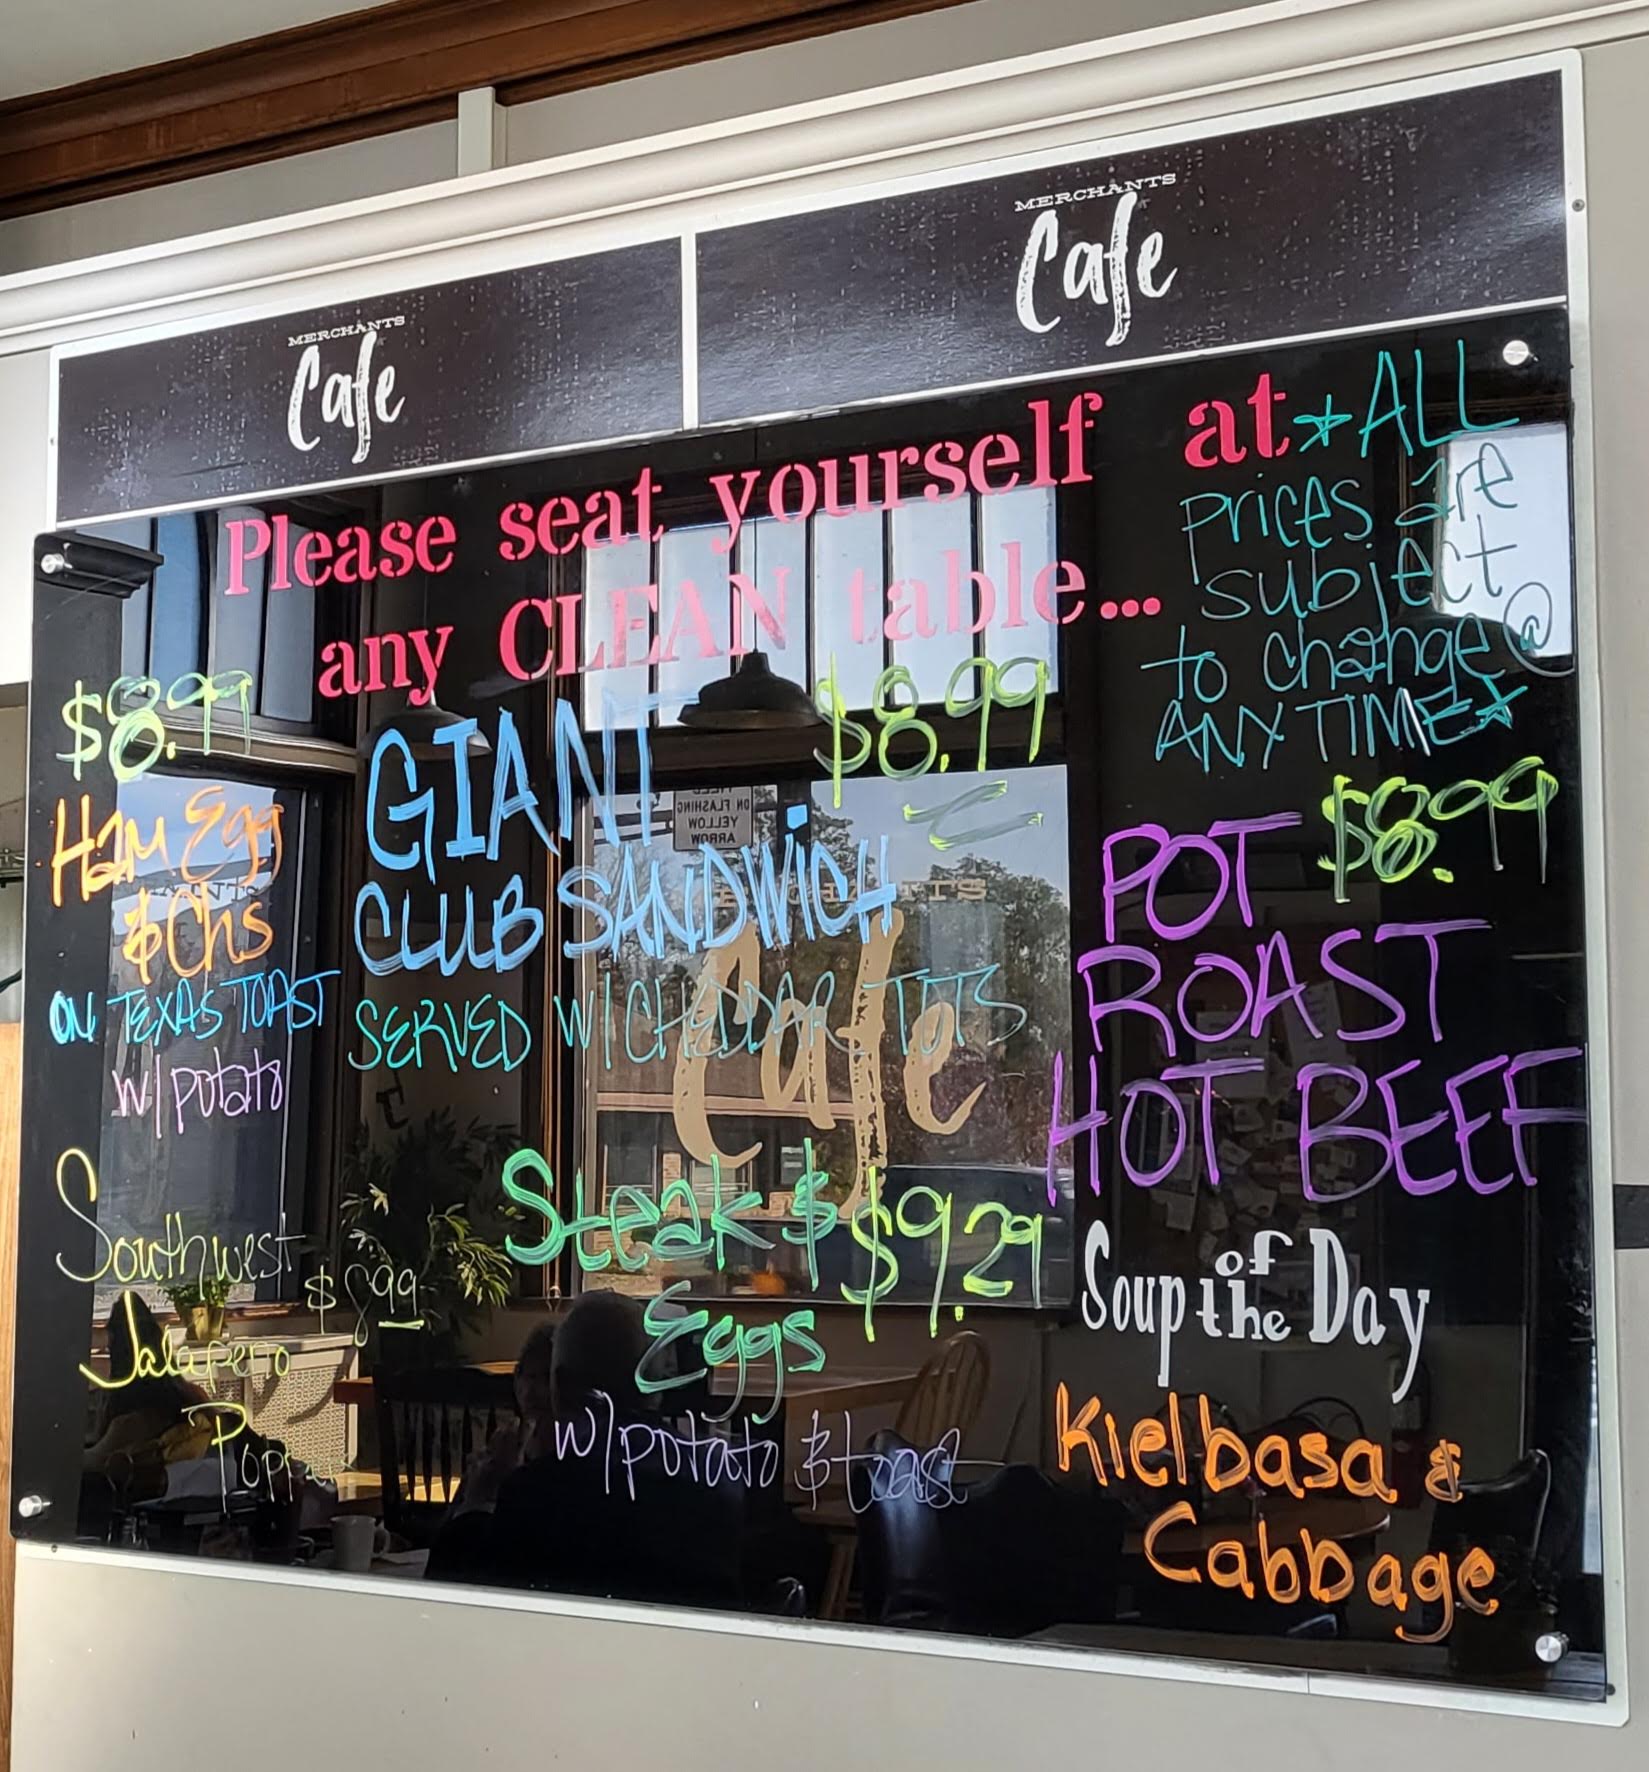 MERCHANTS
Cafe
MERCHANTS
Cafe
Please seat yourself at
any CLEAN table...
*ALL
prices are
subject
to change @
ANY TIME*
$8.99
Ham Egg
& Chs
ON TEXAS TOAST
w/potato
GIANT $8.99
CLUB SANDWICH
SERVED W/CHEDDAR TOTS
$8.99
POT
ROAST
HOT BEEF
Southwest
$8.99
Jalapeno
Poppers
Steak & $9.29
Eggs
w/potato & toast
Soup of the Day
Kielbasa &
Cabbage
Cafe
ON FLASHING
YELLOW
ARROW